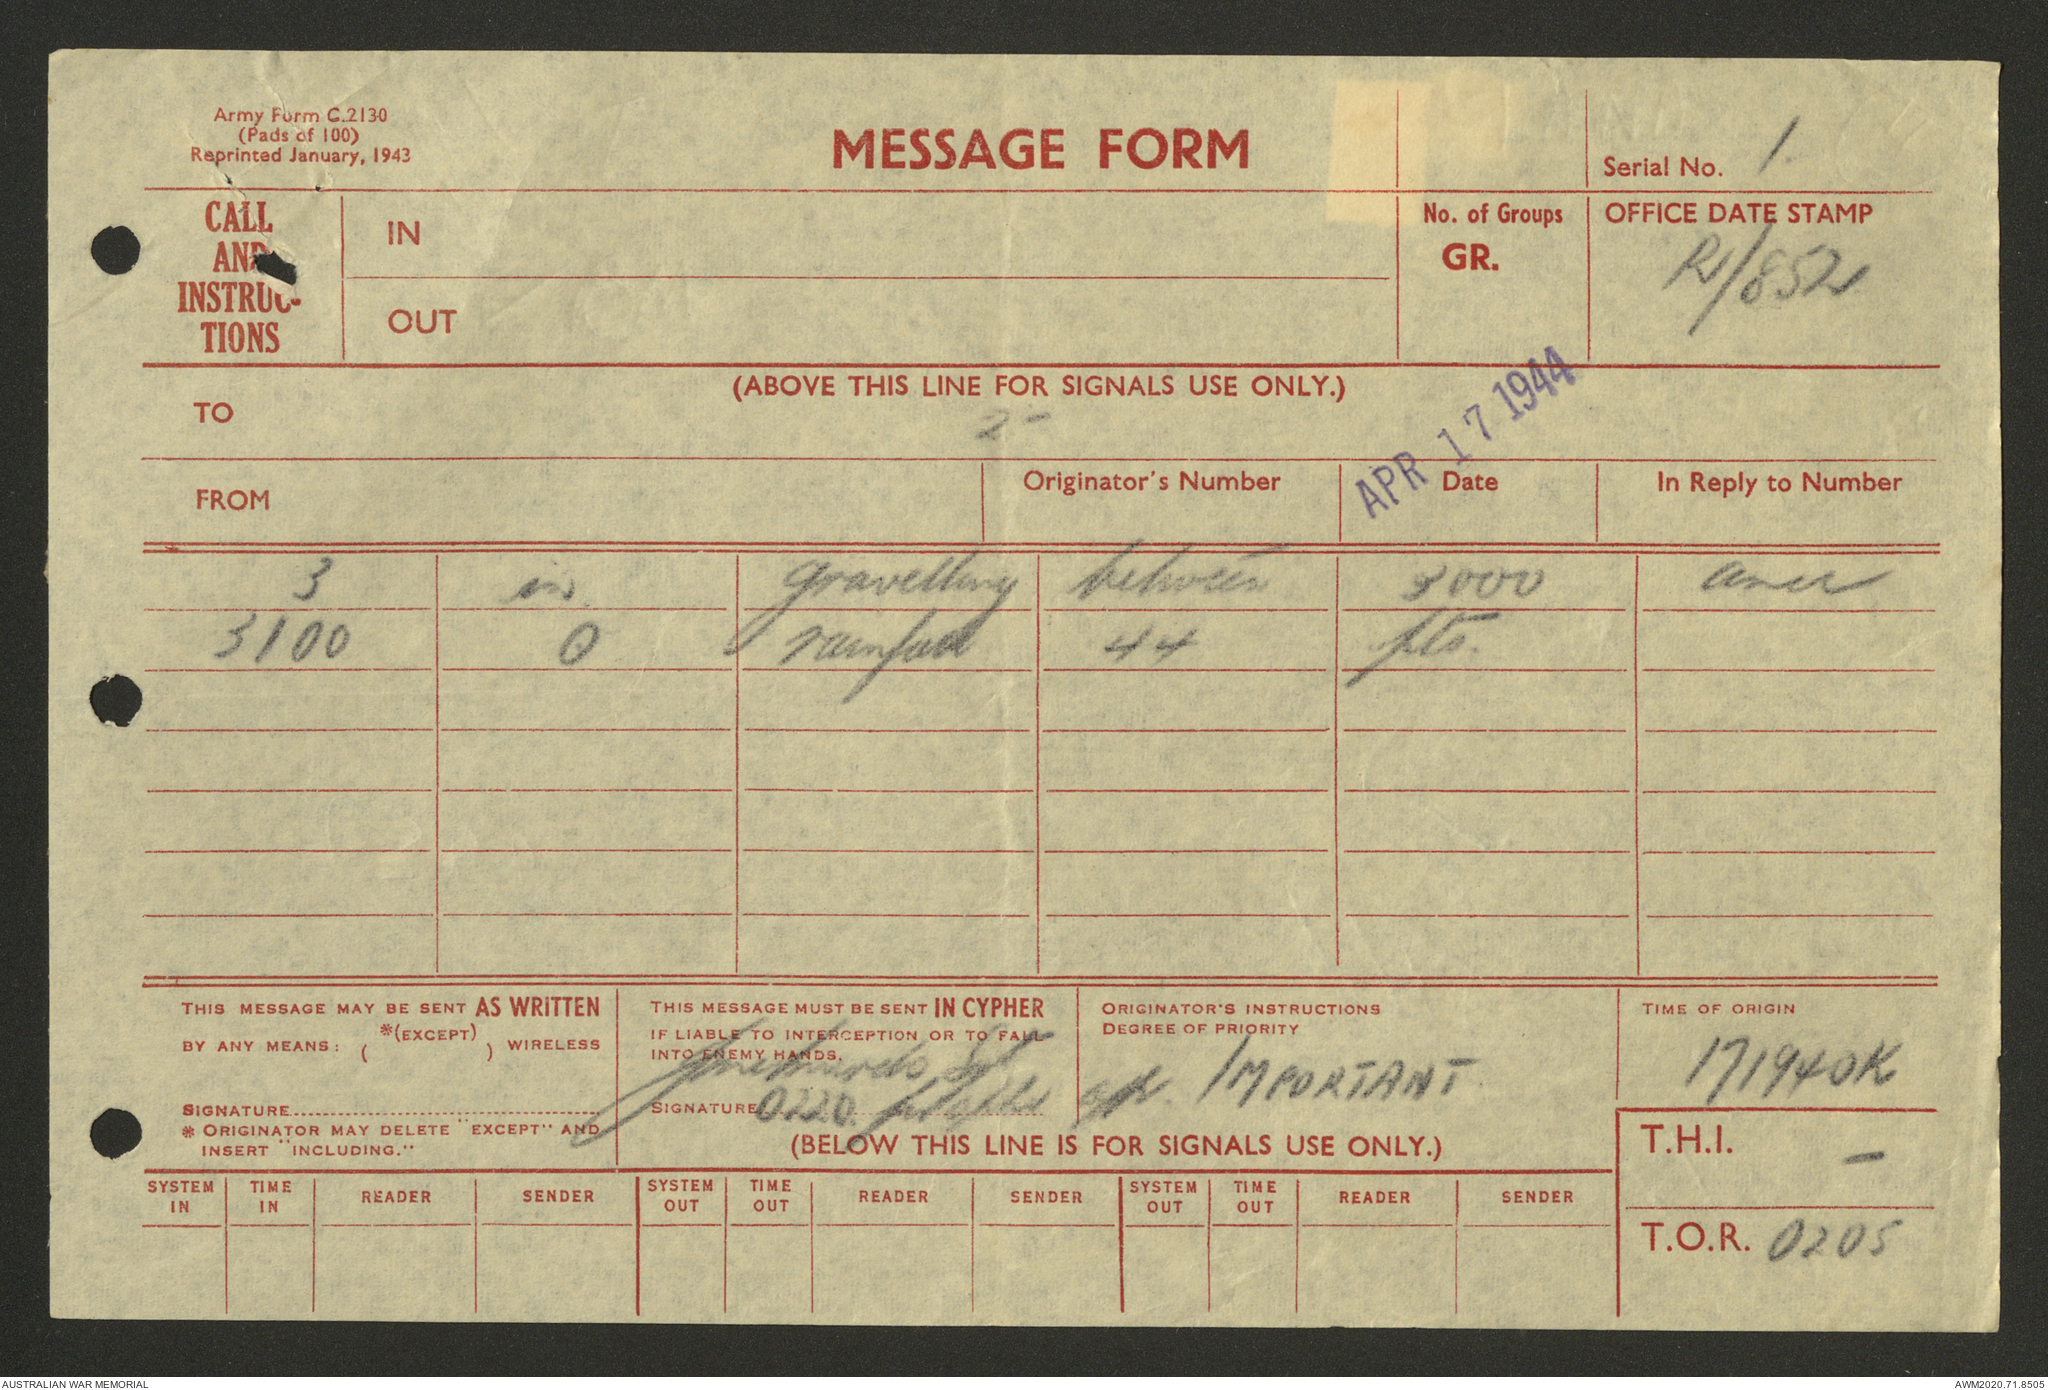 Army Form C.2130
(Pads of 100)
Reprinted January, 1943
MESSAGE FORM
Serial No. 1.
CALL
AND
INSTRUC-
TIONS
IN
OUT
No. of Groups
GR.
OFFICE DATE STAMP
R/852
(ABOVE THIS LINE FOR SIGNALS USE ONLY.)
TO
2-
APR 17 1944
FROM
Originator's Number
Date
In Reply to Number
3 in. gravelling between 3000 and
3100 0 rainfall 44 pts.
THIS MESSAGE MAY BE SENT AS WRITTEN
BY ANY MEANS: ( *(EXCEPT) ) WIRELESS
SIGNATURE
* ORIGINATOR MAY DELETE "EXCEPT" AND
INSERT "INCLUDING."
THIS MESSAGE MUST BE SENT IN CYPHER
IF LIABLE TO INTERCEPTION OR TO FALL
INTO ENEMY HANDS.
SIGNATURE 0220
ORIGINATOR'S INSTRUCTIONS
DEGREE OF PRIORITY
IMPORTANT
TIME OF ORIGIN
171940K
(BELOW THIS LINE IS FOR SIGNALS USE ONLY.)
T.H.I. -
T.O.R. 0205
SYSTEM IN TIME IN READER SENDER SYSTEM OUT TIME OUT READER SENDER SYSTEM OUT TIME OUT READER SENDER
AUSTRALIAN WAR MEMORIAL
AWM2020.71.8505